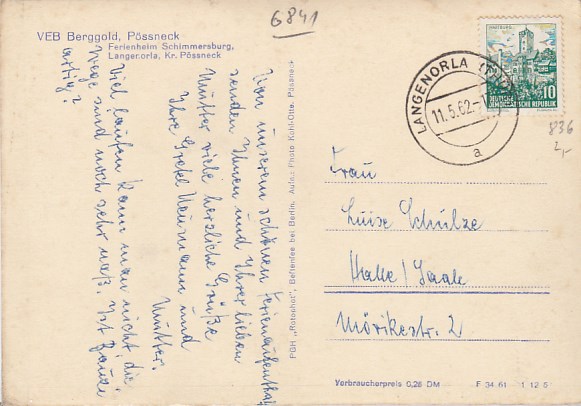 6841
VEB Berggold, Pössneck
Ferienheim Schimmersburg,
Langenorla, Kr. Pössneck
WARTBURG
10
DEUTSCHE
DEMOKRATISCHE REPUBLIK
LANGENORLA
11.5.62
a
836
2,-
Von unserem schönen Ferienaufenthalt
senden Ihnen und Ihrer lieben
Mutter viele herzliche Grüße
Ihre Gretel Neumann und
Mutter.
Viel laufen kann man nicht, die
Wege sind noch sehr naß. Ist
artig?
PGH „Rotophot", Bestensee bei Berlin. Aufn.: Photo Kohl-Otte, Pössneck
Frau
Luise Schulze
Halle/Saale
Mörikestr. 2
Verbraucherpreis 0,28 DM
F 34 61 1 12 5